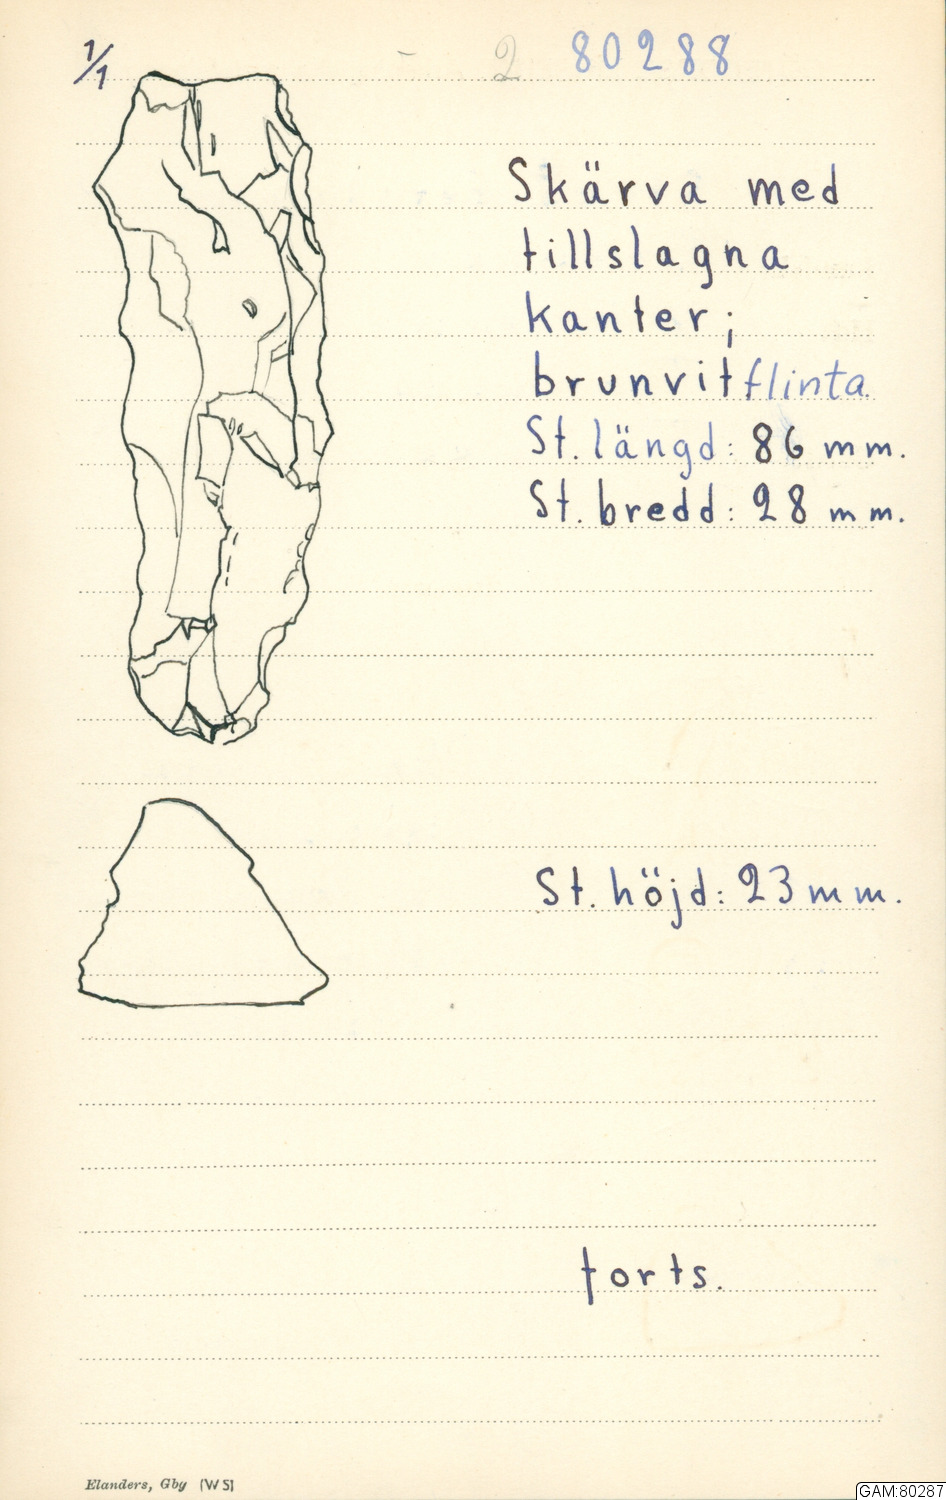 1/1
- 2 80288
Skärva med
tillslagna
kanter;
brunvit flinta.
St. längd: 86 mm.
St. bredd: 28 mm.
St. höjd: 23 mm.
forts.
Elanders, Gby (WS)
GAM:80287